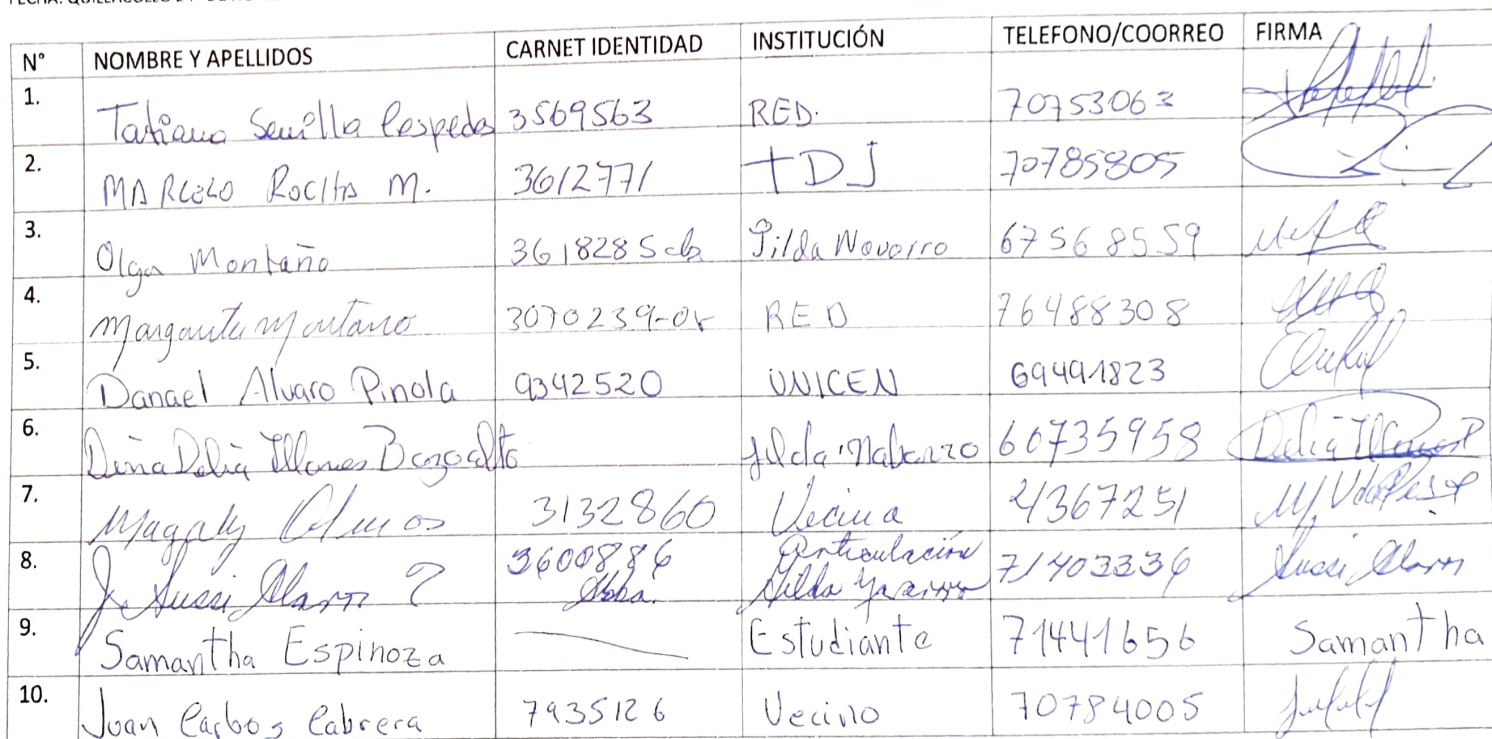 N° NOMBRE Y APELLIDOS CARNET IDENTIDAD INSTITUCIÓN TELEFONO/COORREO FIRMA
1. Tatiana Sevilla Cespedes 3569563 RED. 70753063
2. MARCELO ROCHA M. 3612771 TDJ 70785805
3. Olga Montaño 3618285 cb Gilda Navarro 67568559
4. Margarita Montaño 3070239-or RED 76488308
5. Danael Alvaro Pinola 9342520 UNICEN 69491823
6. Dina Delia Illanes Jilda Nabarro 60735958 Delia Illanes
7. Magaly Olmos 3132860 Vecina 4367251
8. Sussi 3600886 Cbba. Articulación Gilda Navarro 71403336 Sussi
9. Samantha Espinoza Estudiante 71441656 Samantha
10. Juan Carlos Cabrera 7935126 Vecino 70784005